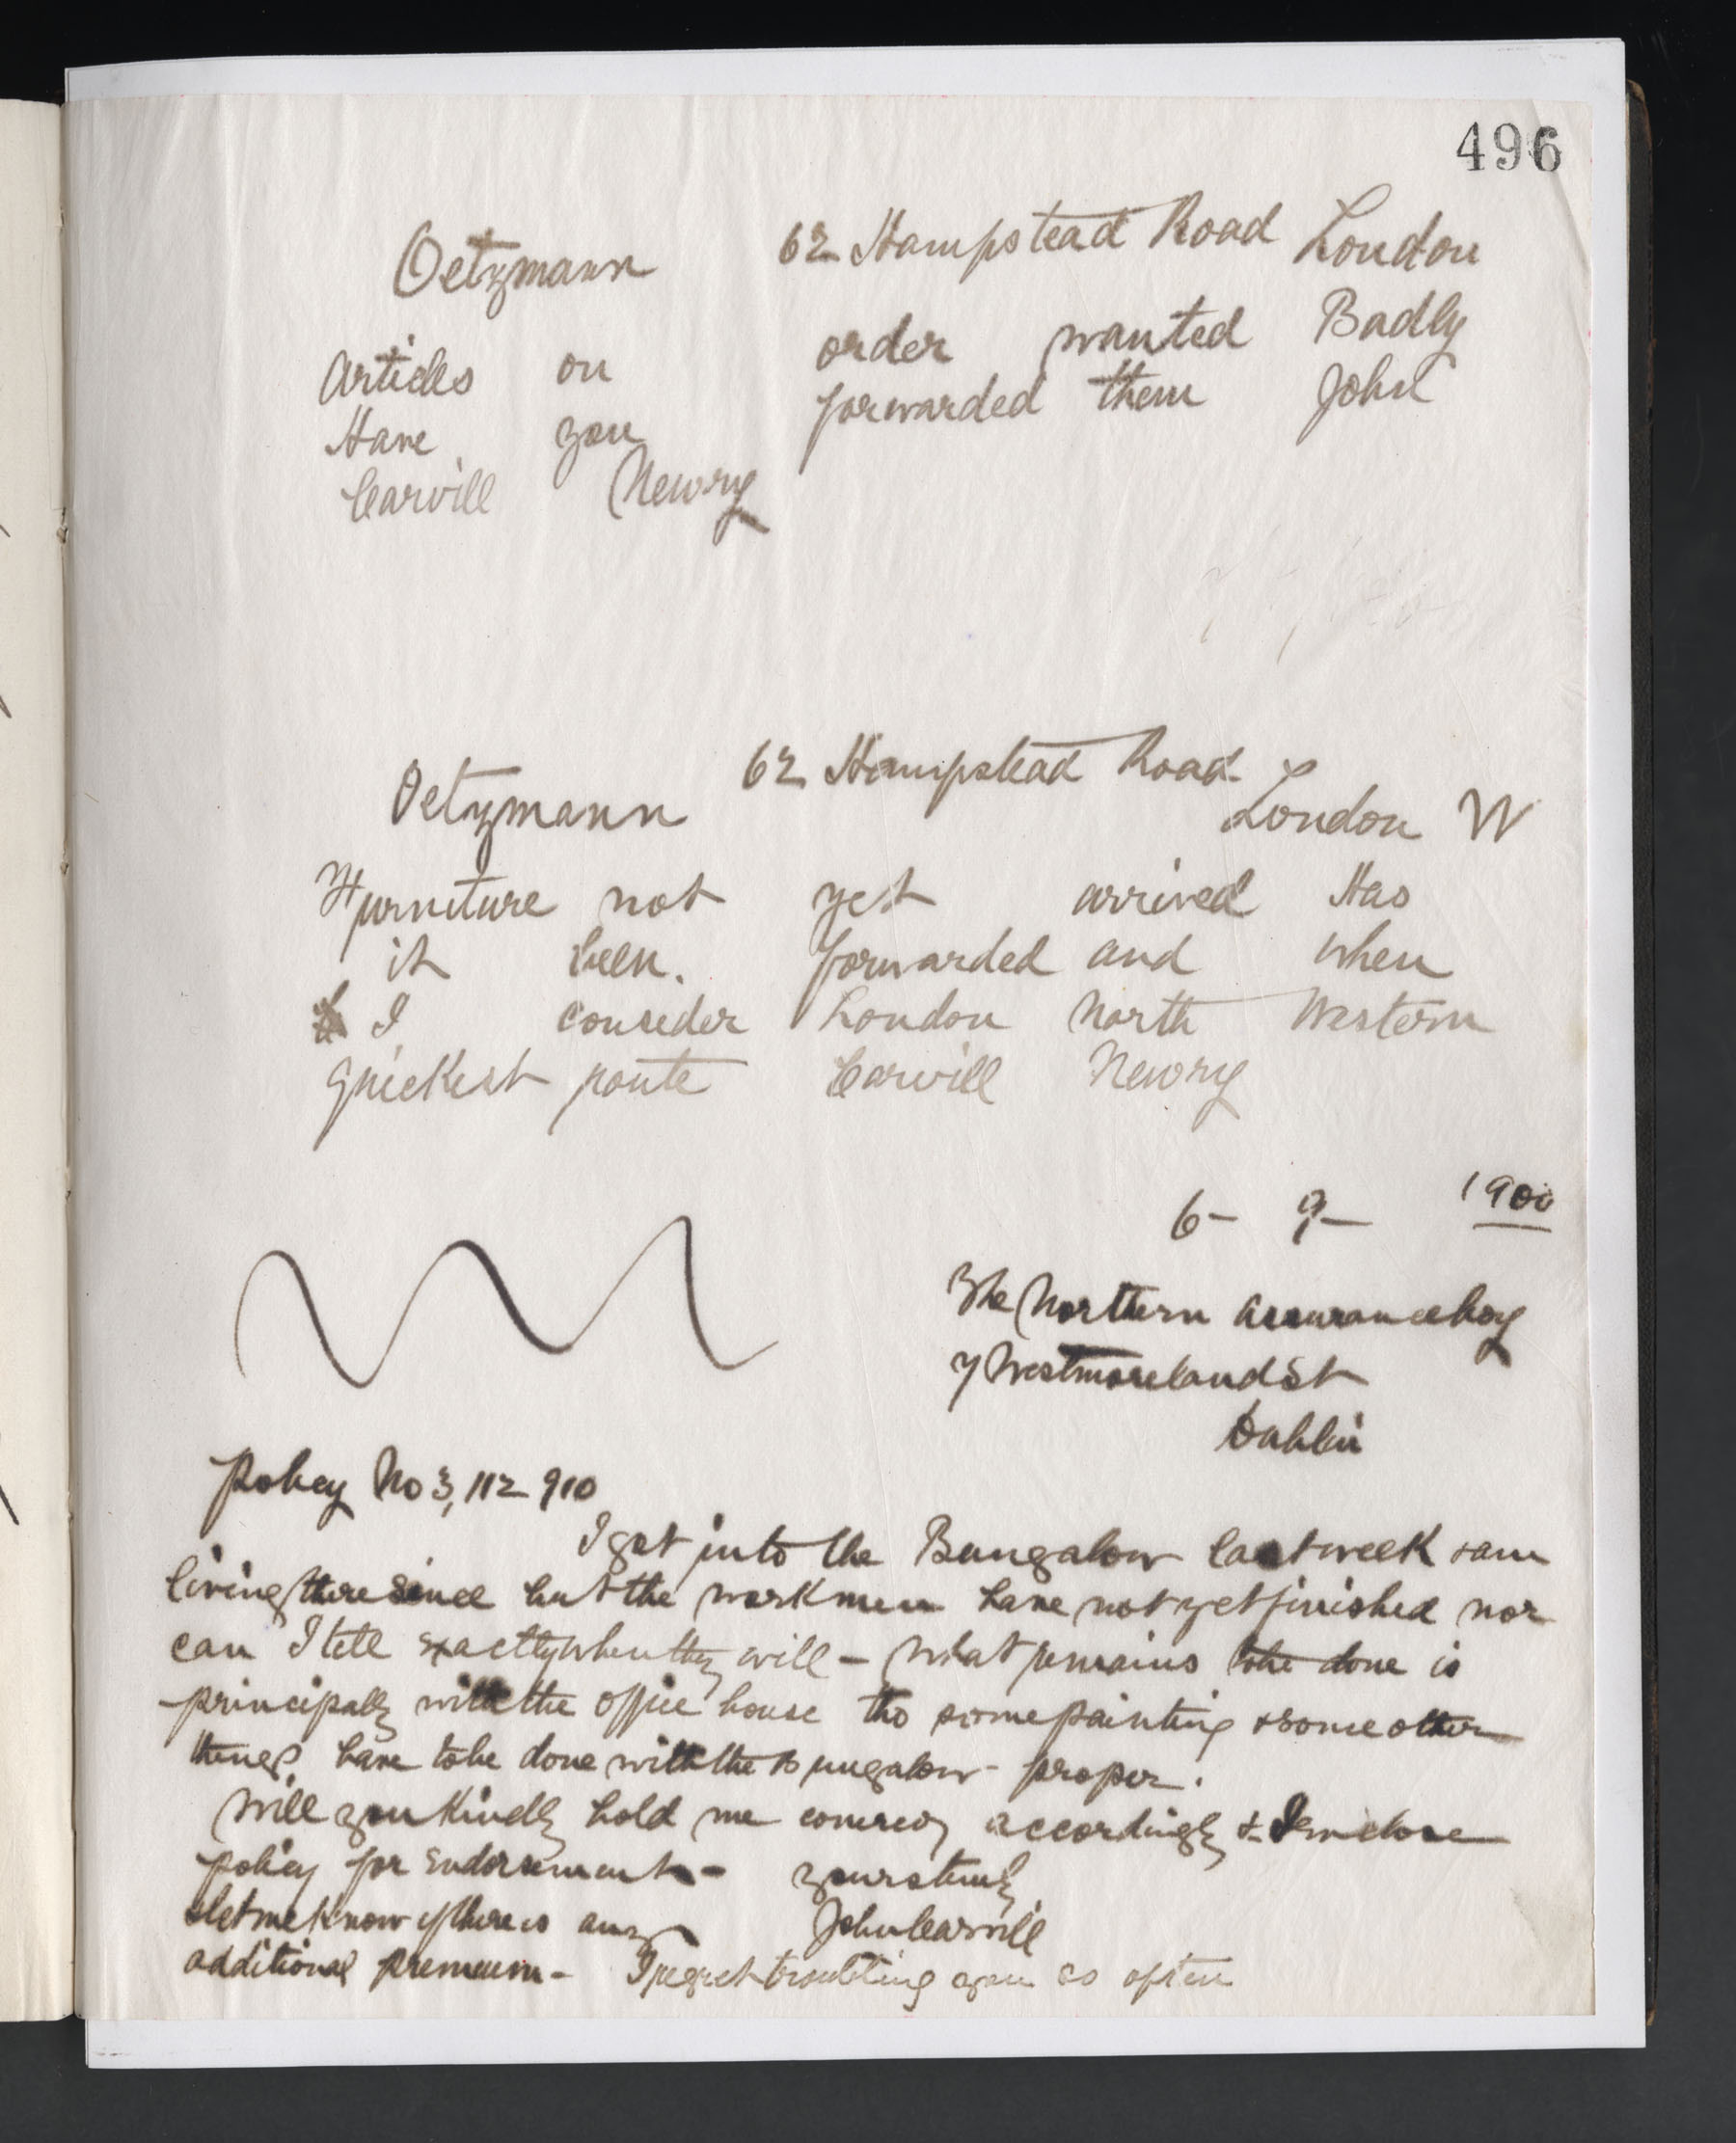 496
Oetzmann 62 Hampstead Road London
Articles on order wanted Badly
Have you forwarded them John
Carvill Newry
Oetzmann 62 Hampstead Road
London W
Furniture not yet arrived Has
it been forwarded and when
I consider London North Western
quickest route Carvill Newry
6- 9- 1900
The Northern Assurance Coy
7 Westmoreland St
Dublin
Policy No 3,112 910
I got into the Bungalow last week & am
living there since but the workmen have not yet finished nor
can I tell exactly when they will - What remains to be done is
principally with the office house tho some painting & some other
things have to be done with the Bungalow proper.
Will you kindly hold me covered accordingly & I enclose
policy for endorsement - yours truly
& let me know if there is any John Carvill
additional premium - I regret troubling you so often